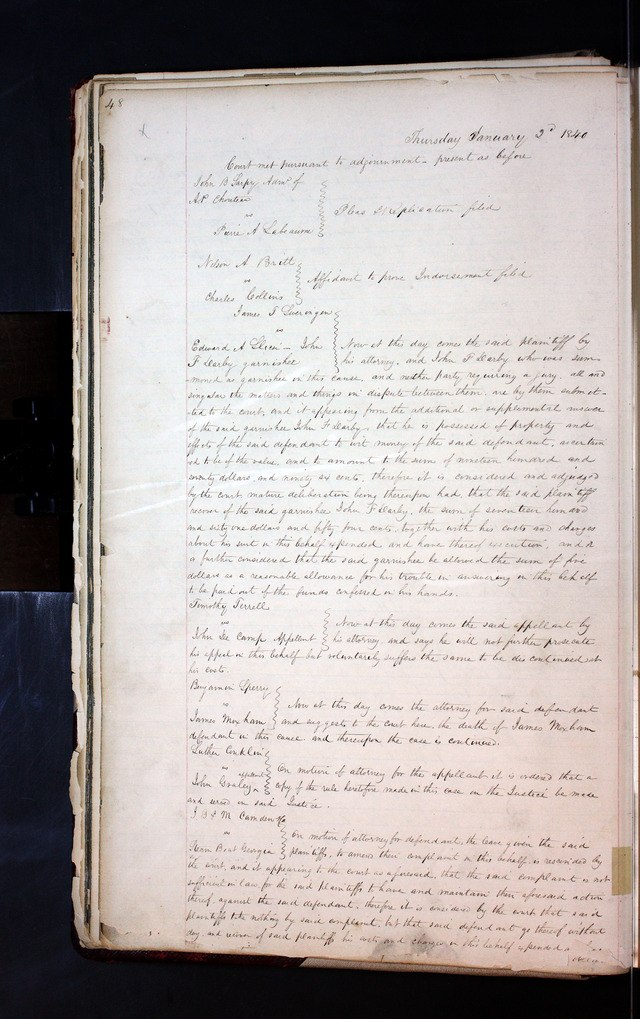 48
Thursday January 2d 1840
Court met pursuant to adjournment - present as before
John B Sarpy Admr of
A.P. Chouteau
vs
Pierre A Labeaume
Pleas & replication filed
Nelson A Britt
vs
Charles Collins
Affidavit to prove Indorsement filed
James T
vs
Edward A - John
F Darby garnishee
Now at this day comes the said plaintiff by
his attorney, and John F Darby who was sum-
moned as garnishee in this cause, and neither party requiring a jury, all and
singular the matters and things in dispute between them, are by them submit-
ted to the court, and it appearing from the additional or supplemental answer
of the said garnishee John F Darby, that he is possessed of property and
effects of the said defendant to wit money of the said defendant, ascertain
ed to be of the value, and to amount to the sum of nineteen hundred and
seventy dollars, and ninety six cents, therefore it is considered and adjudged
by the court, mature deliberation being thereupon had, that the said plaintiff
recover of the said garnishee John F Darby, the sum of seventeen hundred
and sixty one dollars and fifty four cents, together with his costs and charges
about his suit in this behalf expended and have thereof execution, and it
is further considered that the said garnishee be allowed the sum of five
dollars as a reasonable allowance for his trouble in answering in this behalf
to be paid out of the funds confessed in his hands.
Timothy Terrell
vs
John Lee Camp Appellant
Now at this day comes the said appellant by
his attorney, and says he will not further prosecute
his appeal in this behalf but voluntarily suffers the same to be discontinued at
his costs.
Benjamin Sperry
vs
James Moxham
Now at this day comes the attorney for said defendant
and suggests to the court here, the death of James Moxham
defendant in this cause, and thereupon the case is continued.
Luther Conklin
vs
John appellant
On motion of attorney for the appellant it is ordered that a
copy of the rule heretofore made in this case on the Justice be made
and served on said Justice.
J B & M Camden &Co
vs
Steam Boat Georgia
On motion of attorney for defendant, the leave given the said
plaintiffs, to amend their complaint in this behalf is rescinded by
the court, and it appearing to the court as aforesaid, that the said complaint is not
sufficient in law for the said plaintiffs to have and maintain their aforesaid action
thereof, against the said defendant, therefore it is considered by the court that said
plaintiffs take nothing by said complaint, but that said defendant go thereof without
day, and recover of said plaintiffs his costs and charges in this behalf expended